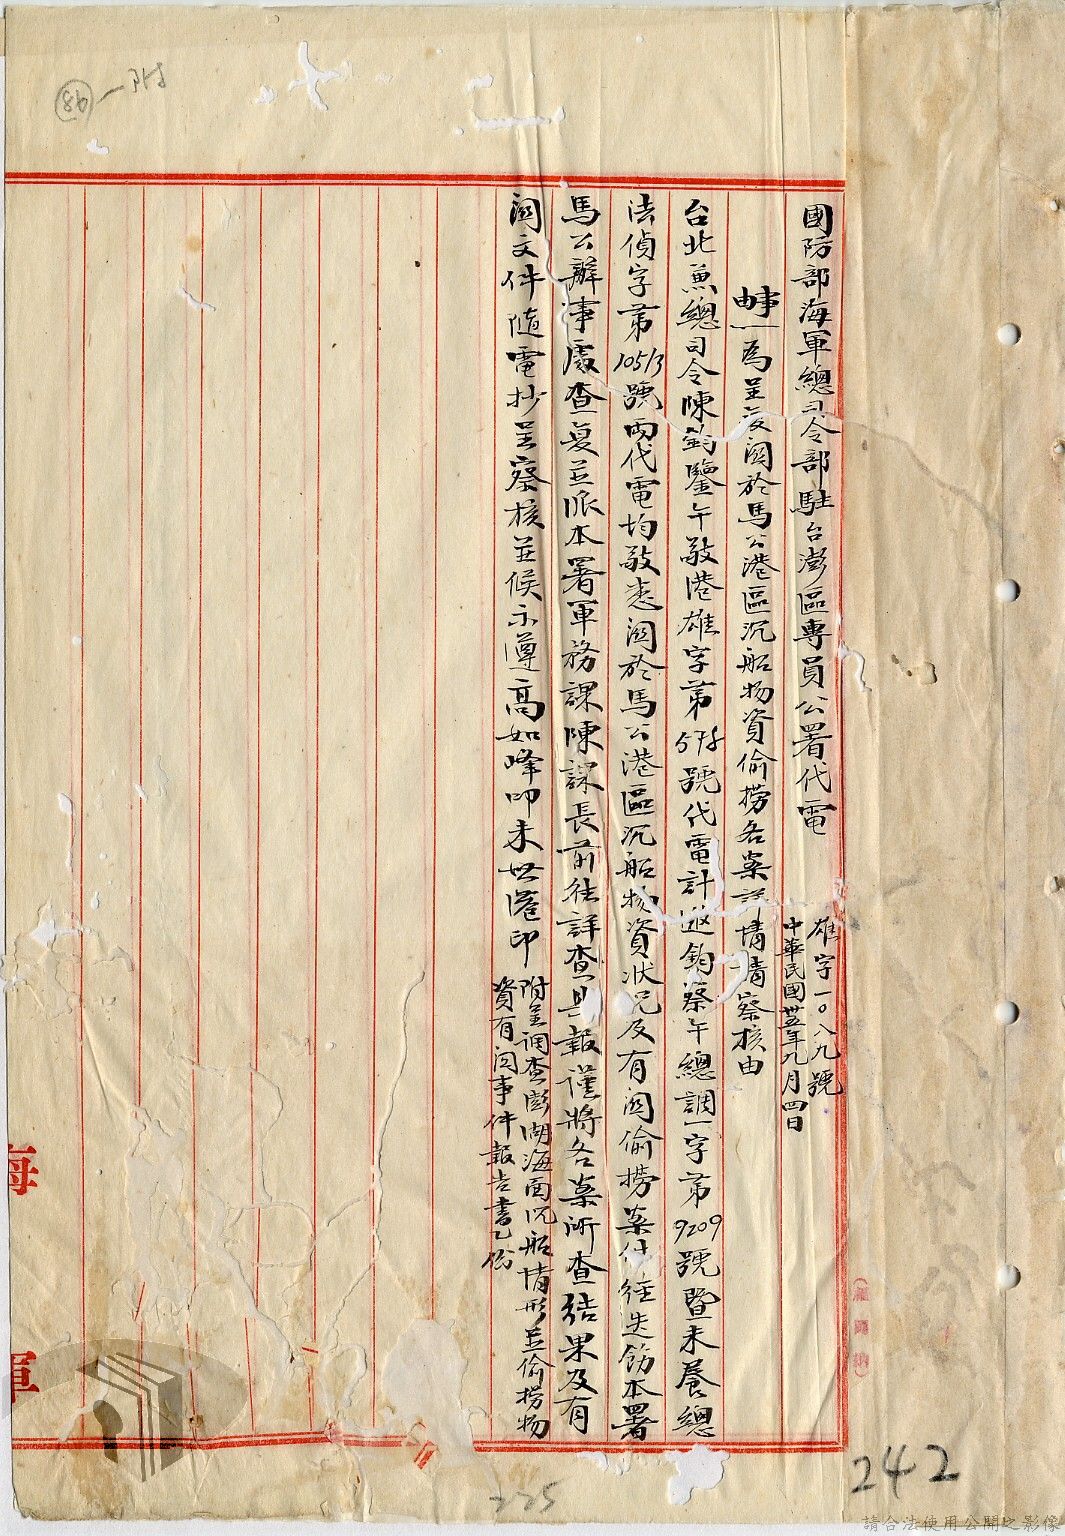 附一
98
國防部海軍總司令部駐台澎區專員公署代電
雄字一〇八九號
中華民國卅五年九月四日
事由
為呈复関於馬公港區沉船物資偷撈各案詳情請察核由
台北兼總司令陳鈞鑒午敬港雄字第578號代電計邀鈞察午總調一字第9209號暨未養總
法偵字第10513號兩代電均敬悉関於馬公港區沉船物資狀況及有関偷撈案件經迭飭本署
馬公辦事處查复並派本署軍務課陳課長前往詳查具報謹將各案所查結果及有
関文件隨電抄呈察核並候示遵高如峰叩未世港印
附呈調查澎湖海面沉船情形並偷撈物
資有関事件報告書乙份
海
軍
242
225
請合法使用公開之影像